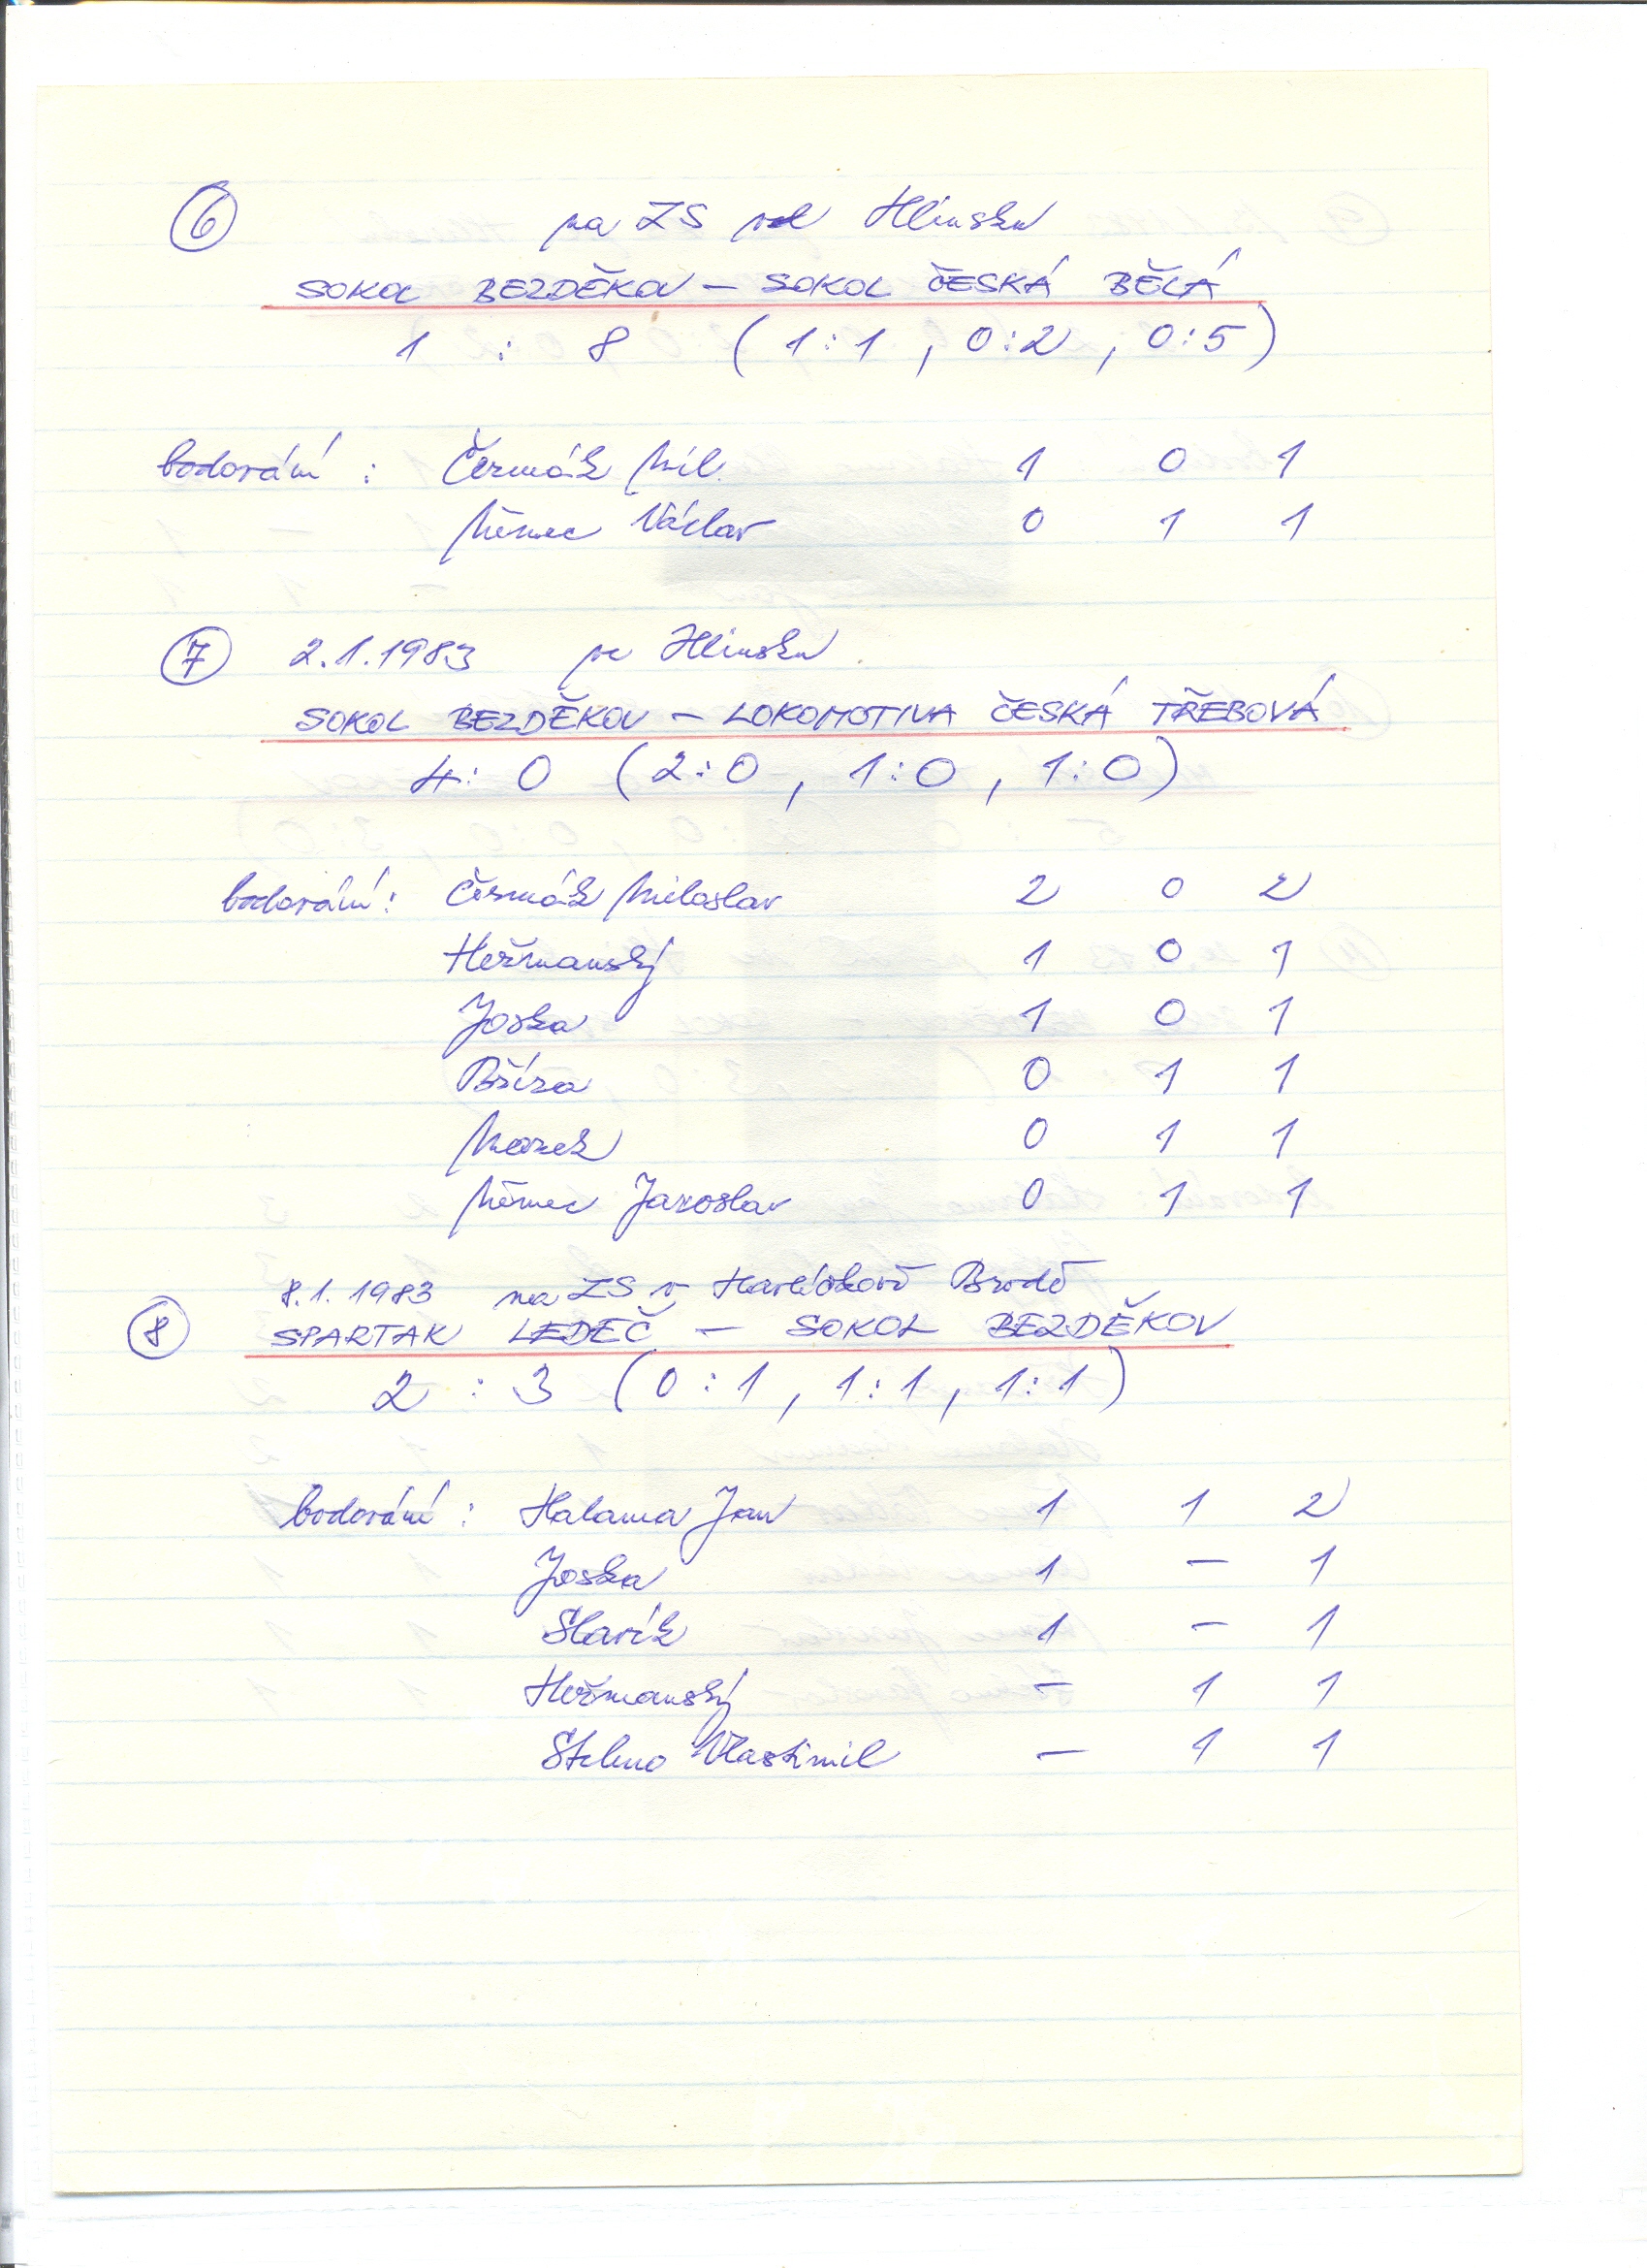 6 na ZS ve Hlinsku
SOKOL BEZDĚKOV – SOKOL ČESKÁ BĚLÁ
1 : 8 (1:1, 0:2, 0:5)
bodování : Čermák Mil. 1 0 1
Němec Václav 0 1 1
7 2.1.1983 ve Hlinsku
SOKOL BEZDĚKOV – LOKOMOTIVA ČESKÁ TŘEBOVÁ
4 : 0 (2:0, 1:0, 1:0)
bodování : Čermák Miloslav 2 0 2
Heřmanský 1 0 1
Joska 1 0 1
Bříza 0 1 1
Marek 0 1 1
Němec Jaroslav 0 1 1
8.1.1983 na ZS v Havlíčkově Brodě
8 SPARTAK LEDEČ – SOKOL BEZDĚKOV
2 : 3 (0:1, 1:1, 1:1)
bodování : Halama Jan 1 1 2
Joska 1 – 1
Slavík 1 – 1
Heřmanský – 1 1
Stehno Vlastimil – 1 1